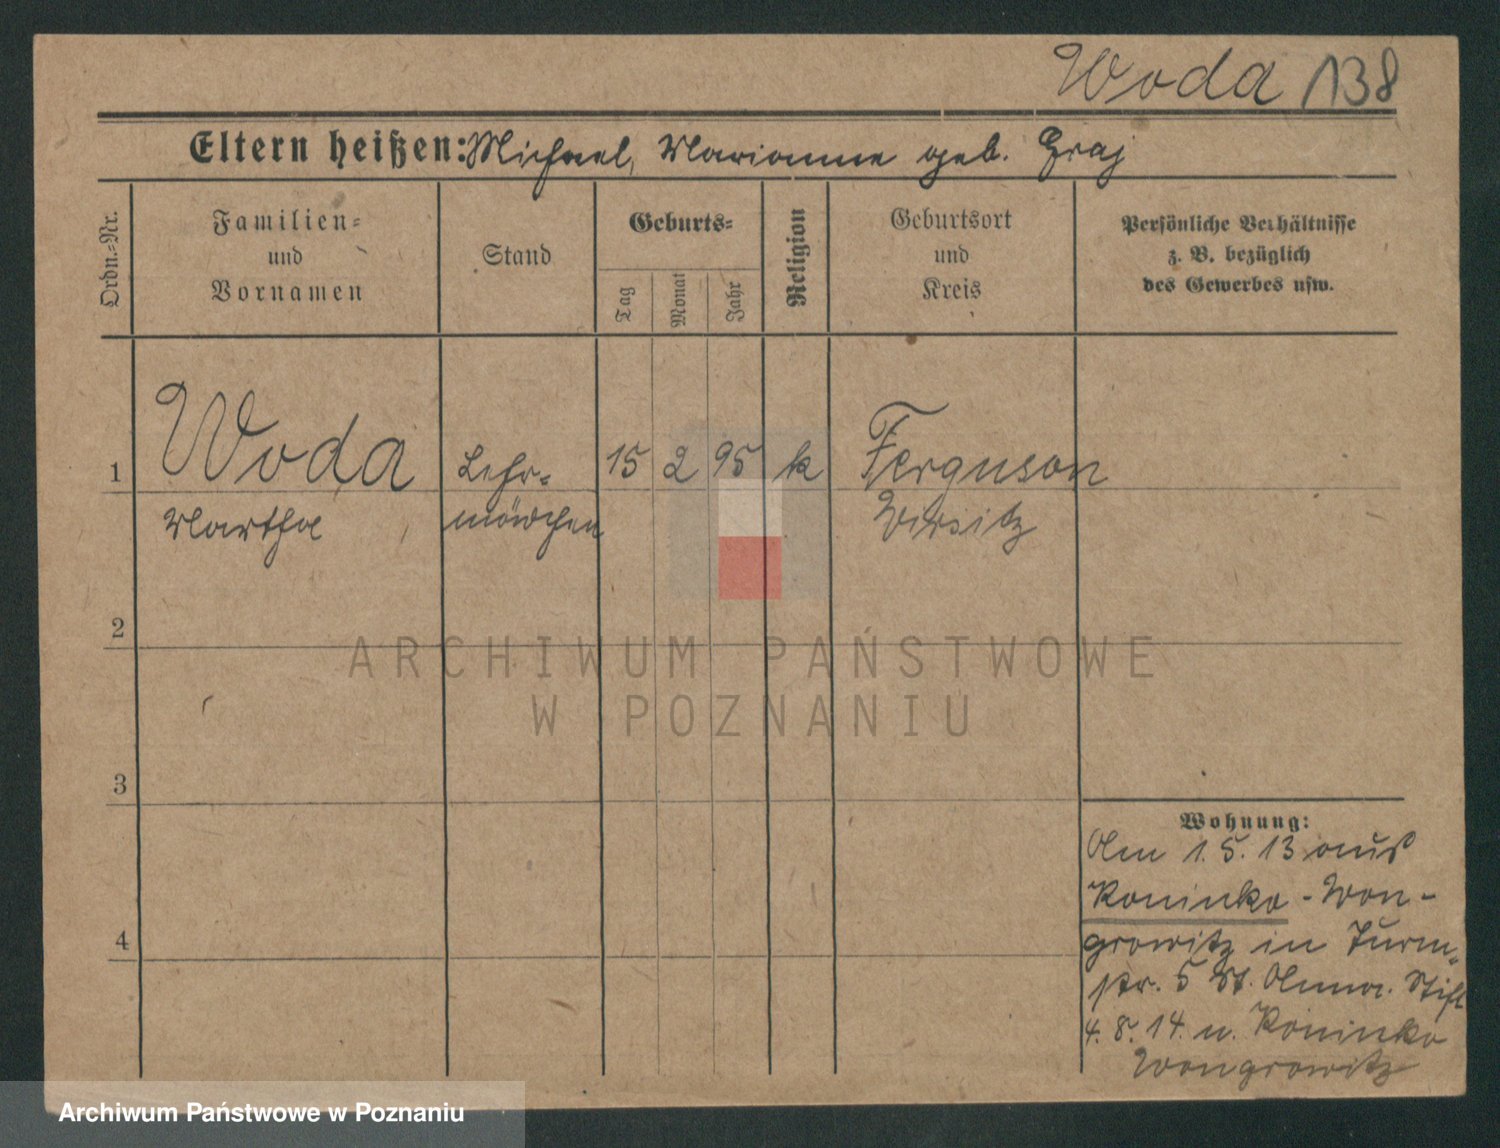 Woda 138
Eltern heißen: Michael, Marianne geb. Graj
Ordn.-Nr.
Familien-
und
Vornamen
Stand
Geburts-
Tag
Monat
Jahr
Religion
Geburtsort
und
Kreis
Persönliche Verhältnisse
z. B. bezüglich
des Gewerbes usw.
1 Woda Lehr- 15 2 95 k Ferguson
Martha mädchen Wirsitz
2
ARCHIWUM PAŃSTWOWE
W POZNANIU
3
Wohnung:
Am 1. 5. 13 aus
4
Koninko - Won-
growitz in Turm-
str. 5 St. Anna. Stift
4. 8. 14. n. Koninko
Wongrowitz
Archiwum Państwowe w Poznaniu